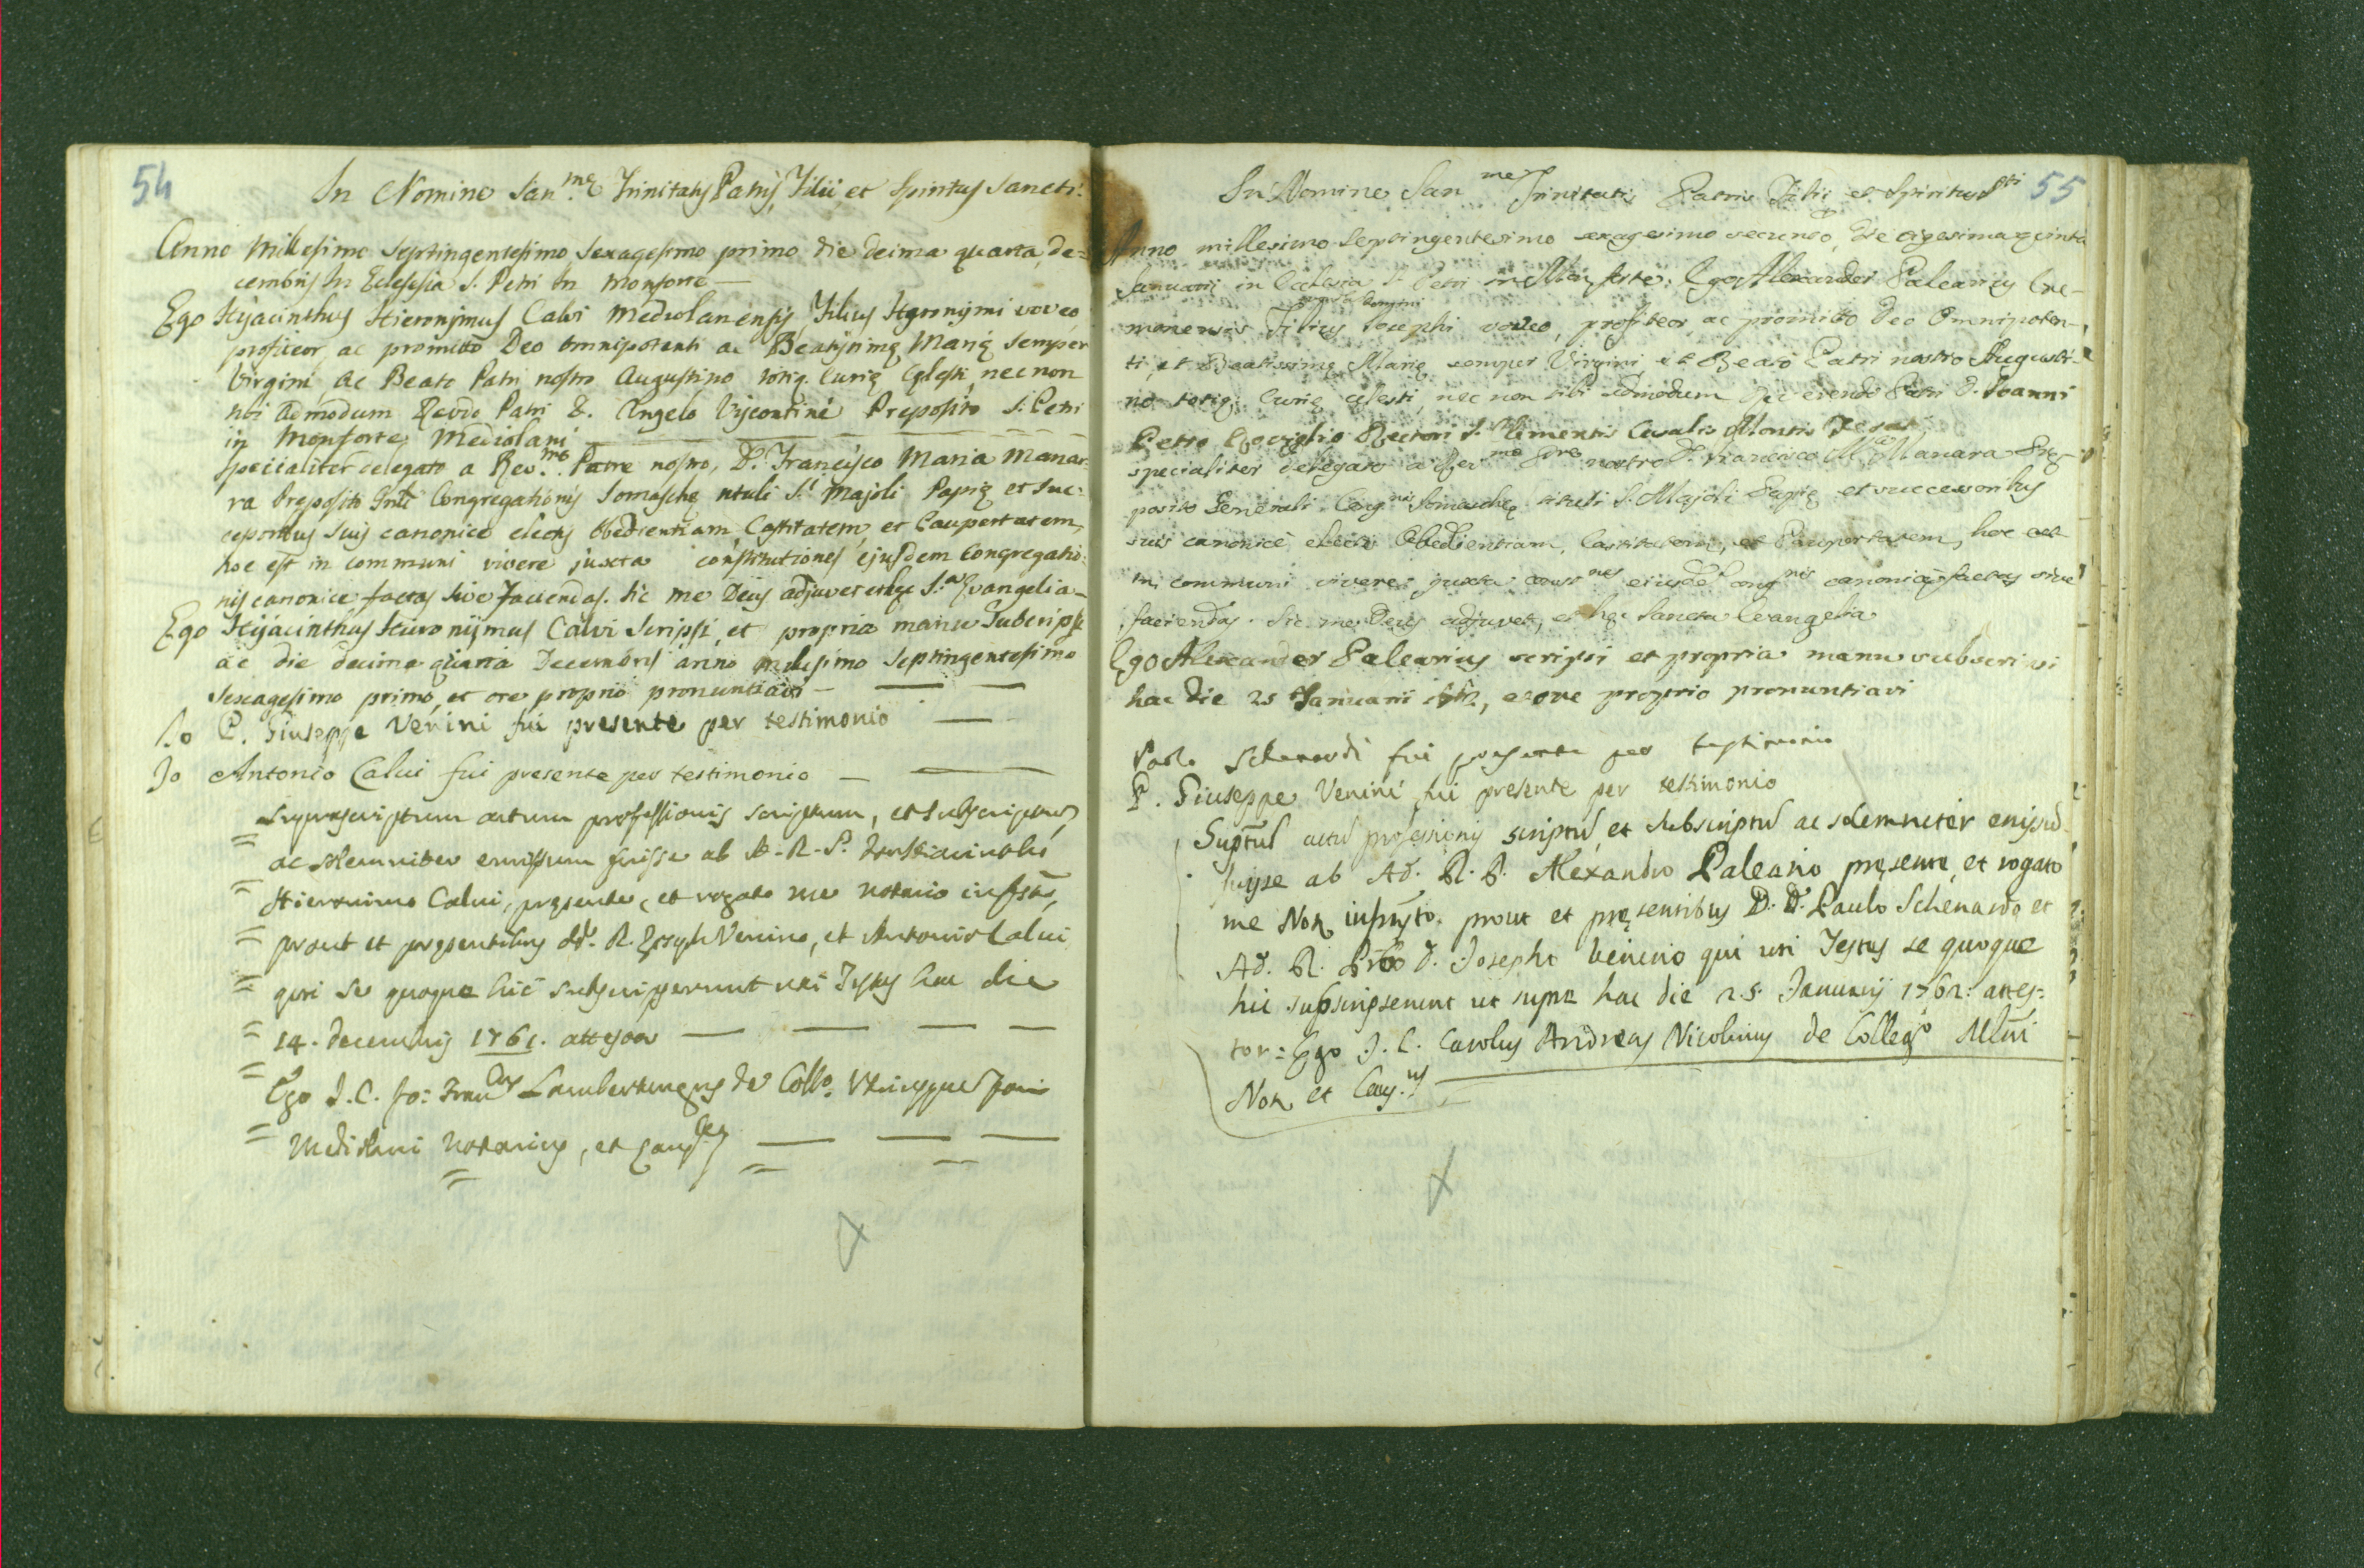 54
In Nomine San.mę Trinitatis Patris, Filii et Spiritus Sancti.
Anno Millesimo Septingentesimo Sexagesimo primo die decima quarta, de=
cembris In Ecclesia S. Petri In Monforte —
Ego Hyacinthus Hieronymus Calvi Mediolanensis, Filius Hyeronymi voveo,
profiteor, ac promitto Deo omnipotenti ac Beatissimę Marię semper
Virgini, ac Beato Patri nostro Augustino totiq. Curię Cęlesti, nec non
tibi admodum Revdo Patri D. Angelo Visconti Preposito S. Petri
in Monforte, Mediolani
specialiter delegato a Rev.mo Patre nostro, D. Francisco Maria Mana=
ra Preposito Gnli Congregationis Somaschę tituli S.i Majoli Papię et suc=
cessoribus suis canonice electis Obedientiam, Castitatem, et Paupertatem,
hoc est in communi vivere juxta constitutiones ejusdem Congregatio=
nis canonice factas sive faciendas. Sic me Deus adjuvet et hęc S.a Evangelia —
Ego Hyacinthus Hieronymus Calvi Scripsi, et propria manu Subcripsi
ac die decima quarta Decembris anno milesimo Septingentesimo
sexagesimo primo, et ore proprio pronuntiavi —
Io P. Giuseppe Venini fui presente per testimonio —
Io Antonio Calui fui presente per testimonio —
Suprascriptum actum professionis scriptum, et subscriptum,
ac solemniter emissum fuisse ab A. R. P.
Hieronimo Calui, pręsente, et rogato me notario infrsto,
prout et pręsentibus R. Joseph Venino, et Antonio Calui
qui se quoque hic subscripserunt uti Testes hac die
14. decembris 1761. attestor —
Ego J. C. Jo: Fran.cus Lambertengus de Collo. Utriusque
Mediolani Notarius, et Caus.cus
55
In Nomine San me Trinitatis Patris Filii et Spiritus Sti
Anno millesimo Septingentesimo sexagesimo secundo, Die vigesima quinta
Januarii in Ecclesia S. Petri in Mon forte. Ego Alexander Palearius Cre-
monensis Filius Josephi voveo, profiteor, ac promitto Deo Omnipoten-
ti, et Beatissimę Marię semper Virgini, et Beato Patri nostro Augusti-
no totiq; Curię cęlesti, nec non tibi admodum Patri D. Joanni
Petro Roviglio Rectori S. Clementis Casalis Montis
specialiter delegato a Rev.mo Pre nostro D. Francisco M.a Manara Pręp-
posito Generali Cong.nis Somaschę tituli S. Majoli Papię et successoribus
suis canonicè electis Obedientiam, Castitatem, et Paupertatem, hoc est
in communi vivere juxta const.nes ejusdem cong.nis canonicę factas sive
faciendas. Sic me Deus adjuvet, et hęc Sancta Evangelia
Ego Alexander Palearius scripsi et propria manu subscri si
hac die 25 Januarii 1762, et ore proprio pronuntiavi
Paolo Schenardi fui presente per testimonio
P. Giuseppe Venini fui presente per testimonio
Suptum actum professionis scriptum et subscriptum ac solemniter emissum
fuisse ab Ad. R. P. Alexandro Paleario pręsente, et rogato
me Not. infrscto. prout et pręsentibus D. D. Paulo Schenardo et
Ad. R. Prło D. Josepho Venino qui uti Testes se quoque
hic subscripserunt ut supra hac die 25. Januarij 1762: attes=
tor = Ego J. C. Carolus Andreas Nicolinus de Collego Mlni
Not. et Caus.us